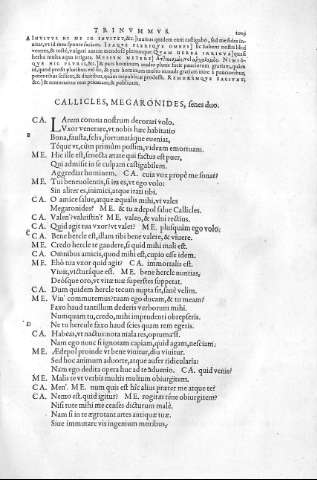 TRINVMMVS
CALLICLES, MEGARONIDES, senes duo.
CA. Larem corona nostrum decorari volo.
Vxor venerare, vt nobis hæc habitatio
B
Bona, fausta, felix, fortunatáque eueniat,
Téque vt, cùm primùm possim, videam emortuam.
ME. Hic ille est, senecta ætate qui factus est puer,
Qui admisit in se culpam castigabilem.
Aggrediar hominem. CA. cuia vox propè me sonat?
ME. Tui beneuolentis, si ita es, vt ego volo:
Sin alter es, inimici, atque irati tibi.
CA. O amice salue, atque æqualis mihi, vt vales
Megaronides? ME. & tu ædepol salue Callicles.
CA. Valen'? valuistín'? ME. valeo, & valui rectius.
CA. Quid agit tua vxor? vt valet? ME. plusquam ego volo.
C
CA. Bene hercle est, illam tibi bene valere, & viuere.
ME. Credo hercle te gaudere, si quid mihi mali est.
CA. Omnibus amicis, quod mihi est, cupio esse idem.
ME. Eho tua vxor quid agit? CA. immortalis est.
Viuit, victuráque est. ME. bene hercle nuntias,
Deósque oro, vt vitæ tuæ superstes suppetat.
CA. Dum quidem hercle tecum nupta sit, sanè velim.
ME. Vin' commutemus? tuam ego ducam, & tu meam?
Faxo haud tantillum dederis verborum mihi.
Nunquam tu, credo, mihi imprudenti obrepseris.
D
Ne tu hercle faxo haud scies quam rem egeris.
CA. Habeas, vt nactus: nota mala res, optuma'st.
Nam ego nunc si ignotam capiam, quid agam, nesciam.
ME. Ædepol proinde vt bene viuitur, diu viuitur.
Sed hoc animum aduorte, atque aufer ridicularia:
Nam ego dedita opera huc ad te aduenio. CA. quid venis?
ME. Malis te vt verbis multis multum obiurgitem.
CA. Men'. ME. num quis est hîc alius præter me atque te?
CA. Nemo est. quid igitur? ME. rogitas téne obiurgitem?
Nisi tute mihi me censes dicturum malè.
Nam si in te ægrotant artes antiquæ tuæ.
Siue immutare vis ingenium moribus,